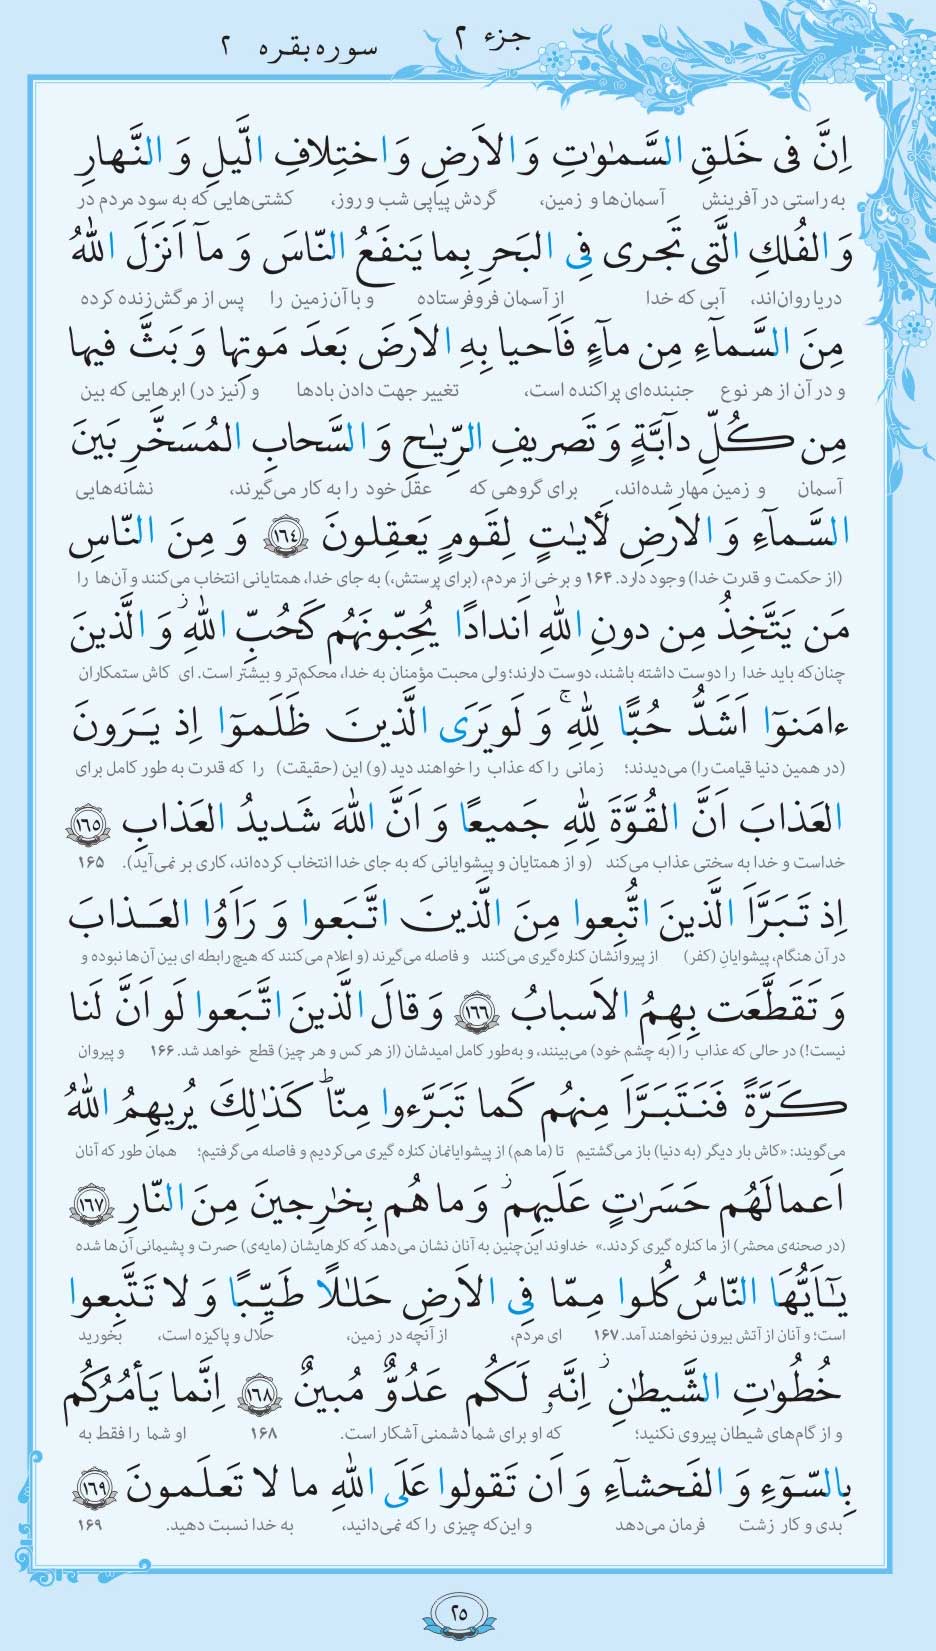 جزء ۲
سوره بقره ۲
اِنَّ فی خَلقِ السَّمٰوٰتِ وَ الاَرضِ وَ اختِلافِ الَّیلِ وَ النَّهارِ
به راستی در آفرینش آسمان‌ها و زمین، گردش پیاپی شب و روز، کشتی‌هایی که به سود مردم در
وَ الفُلکِ الَّتی تَجری فِی البَحرِ بِما یَنفَعُ النّاسَ وَ مآ اَنزَلَ اللّٰهُ
دریا روان‌اند، آبی که خدا از آسمان فروفرستاده و با آن زمین را پس از مرگش زنده کرده
مِنَ السَّمآءِ مِن مآءٍ فَاَحیا بِهِ الاَرضَ بَعدَ مَوتِها وَ بَثَّ فیها
و در آن از هر نوع جنبنده‌ای پراکنده است، تغییر جهت دادن بادها و (نیز در) ابرهایی که بین
مِن کُلِّ دآبَّةٍ وَ تَصریفِ الرِّیٰحِ وَ السَّحابِ المُسَخَّرِ بَینَ
آسمان و زمین مهار شده‌اند، برای گروهی که عقل خود را به کار می‌گیرند، نشانه‌هایی
السَّمآءِ وَ الاَرضِ لَأٰیٰتٍ لِقَومٍ یَعقِلونَ ﴿١٦٤﴾ وَ مِنَ النّاسِ
(از حکمت و قدرت خدا) وجود دارد. ۱۶۴ و برخی از مردم، (برای پرستش،) به جای خدا، همتایانی انتخاب می‌کنند و آن‌ها را
مَن یَتَّخِذُ مِن دونِ اللّٰهِ اَندادًا یُحِبّونَهُم کَحُبِّ اللّٰهِ ۖ وَ الَّذینَ
چنان‌که باید خدا را دوست داشته باشند، دوست دارند؛ ولی محبت مؤمنان به خدا، محکم‌تر و بیشتر است. ای کاش ستمکاران
ءامَنوٓا اَشَدُّ حُبًّا لِلّٰهِ ۗ وَ لَو یَرَی الَّذینَ ظَلَموٓا اِذ یَرَونَ
(در همین دنیا قیامت را) می‌دیدند؛ زمانی را که عذاب را خواهند دید (و) این (حقیقت) را که قدرت به طور کامل برای
العَذابَ اَنَّ القُوَّةَ لِلّٰهِ جَمیعًا وَ اَنَّ اللّٰهَ شَدیدُ العَذابِ ﴿١٦٥﴾
خداست و خدا به سختی عذاب می‌کند (و از همتایان و پیشوایانی که به جای خدا انتخاب کرده‌اند، کاری بر نمی‌آید). ۱۶۵
اِذ تَبَرَّاَ الَّذینَ اتُّبِعوا مِنَ الَّذینَ اتَّبَعوا وَ رَاَوُا العَذابَ
در آن هنگام، پیشوایانِ (کفر) از پیروانشان کناره‌گیری می‌کنند و فاصله می‌گیرند (و اعلام می‌کنند که هیچ رابطه ای بین آن‌ها نبوده و
وَ تَقَطَّعَت بِهِمُ الاَسبابُ ﴿١٦٦﴾ وَ قالَ الَّذینَ اتَّبَعوا لَو اَنَّ لَنا
نیست!) در حالی که عذاب را (به چشم خود) می‌بینند، و به‌طور کامل امیدشان (از هر کس و هر چیز) قطع خواهد شد. ۱۶۶ و پیروان
کَرَّةً فَنَتَبَرَّاَ مِنهُم کَما تَبَرَّءوا مِنّا ۗ کَذٰلِکَ یُریهِمُ اللّٰهُ
می‌گویند: «کاش بار دیگر (به دنیا) باز می‌گشتیم تا (ما هم) از پیشوایانمان کناره گیری می‌کردیم و فاصله می‌گرفتیم؛ همان طور که آنان
اَعمالَهُم حَسَرٰتٍ عَلَیهِم ۖ وَ ما هُم بِخٰرِجینَ مِنَ النّارِ ﴿١٦٧﴾
(در صحنه‌ی محشر) از ما کناره گیری کردند.» خداوند این‌چنین به آنان نشان می‌دهد که کارهایشان (مایه‌ی) حسرت و پشیمانی آن‌ها شده
یٰٓاَیُّهَا النّاسُ کُلوا مِمّا فِی الاَرضِ حَلٰلًا طَیِّبًا وَ لا تَتَّبِعوا
است؛ و آنان از آتش بیرون نخواهند آمد. ۱۶۷ ای مردم، از آنچه در زمین، حلال و پاکیزه است، بخورید
خُطُوٰتِ الشَّیطٰنِ ۖ اِنَّهٗ لَکُم عَدُوٌّ مُبینٌ ﴿١٦٨﴾ اِنَّما یَأمُرُکُم
و از گام‌های شیطان پیروی نکنید؛ که او برای شما دشمنی آشکار است. ۱۶۸ او شما را فقط به
بِالسّوٓءِ وَ الفَحشآءِ وَ اَن تَقولوا عَلَی اللّٰهِ ما لا تَعلَمونَ ﴿١٦٩﴾
بدی و کار زشت فرمان می‌دهد و این‌که چیزی را که نمی‌دانید، به خدا نسبت دهید. ۱۶۹
۲۵